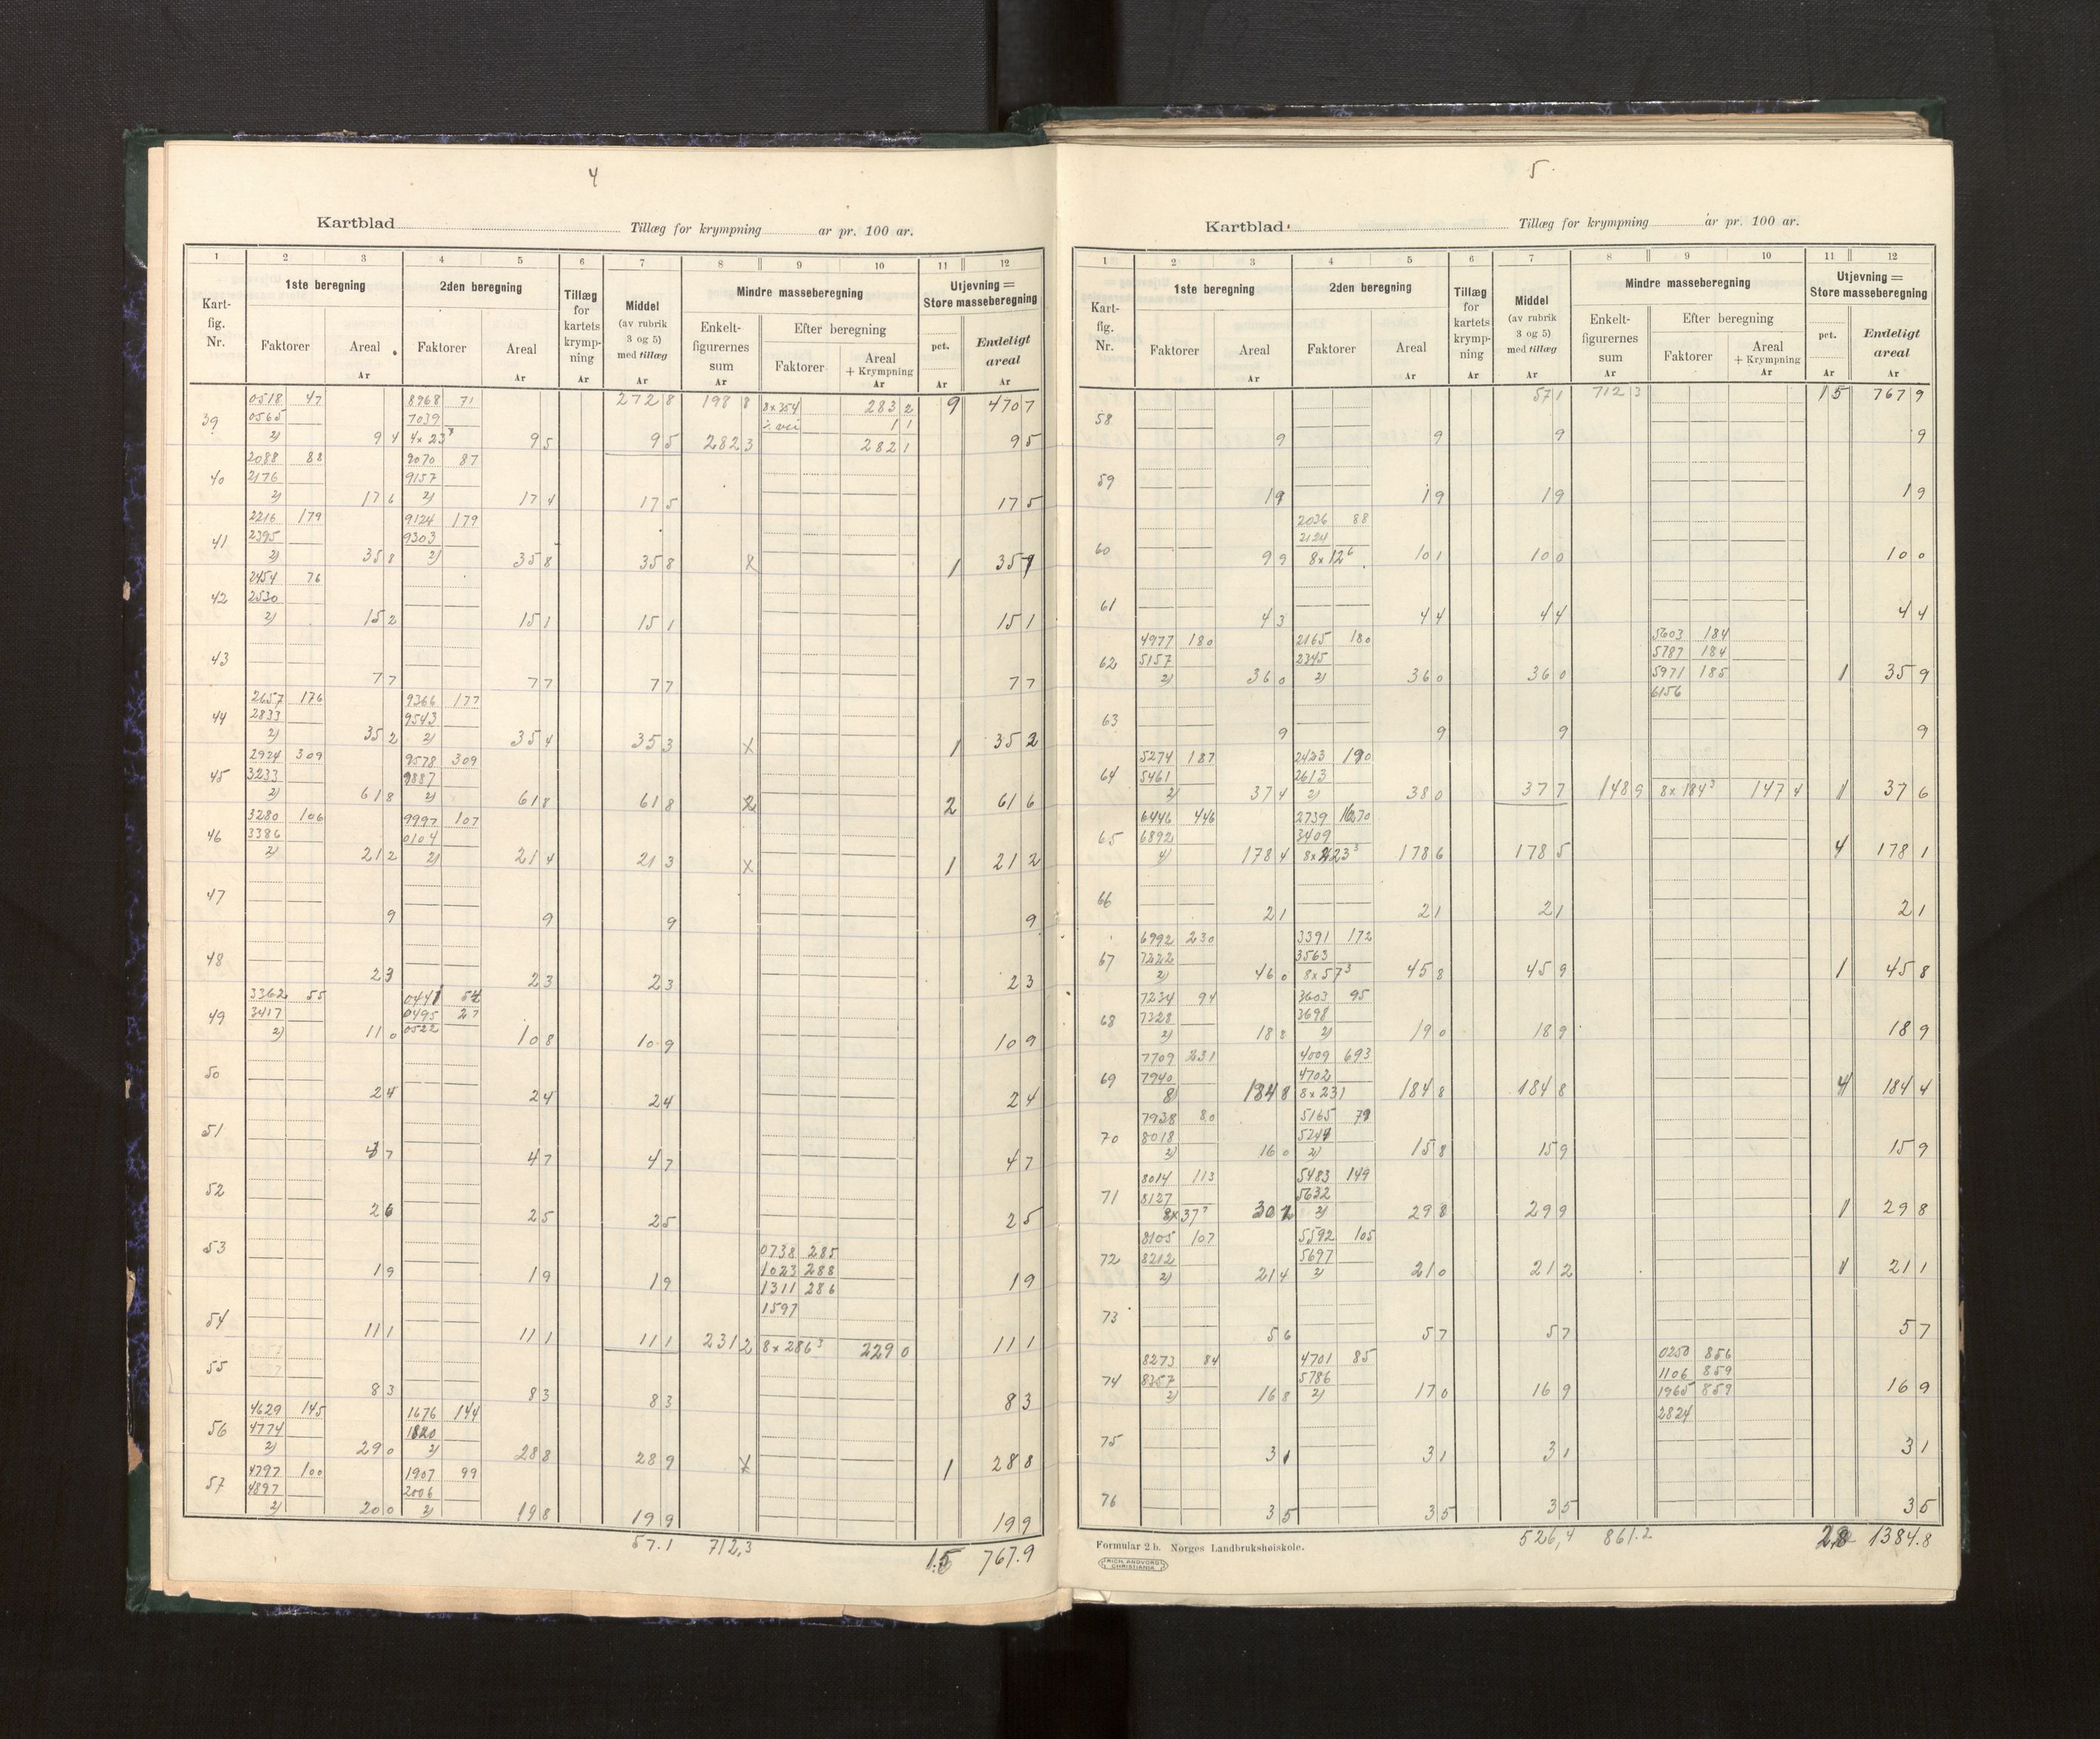 4
Kartblad Tillæg for krympning ar pr. 100 ar.
1 2 3 4 5 6 7 8 9 10 11 12
Kart-fig. Nr. 1ste beregning 2den beregning Tillæg for kartets krympning Middel (av rubrik 3 og 5) med tillæg Mindre masseberegning Utjevning = Store masseberegning
Faktorer Areal Faktorer Areal Enkelt-figurernes sum Efter beregning pct. Endeligt areal
Faktorer Areal + Krympning
Ar Ar Ar Ar Ar Ar Ar Ar
0518 47 8968 71 272 8 198 8 8x354 283 2 9 470 7
0565 7039 1 1
39 2) 9 4 4x23 9 5 9 5 282 3 282 1 9 5
2088 88 9070 87
40 2176 9157
2) 17 6 2) 17 4 17 5 17 5
2216 179 9124 179
41 2395 9303
2) 35 8 2) 35 8 35 8 x 1 35 7
2454 76
42 2530
2) 15 2 15 1 15 1 15 1
43 7 7 7 7 7 7 7 7
2657 176 9366 177
44 2833 9543
2) 35 2 2) 35 4 35 3 x 1 35 2
2924 309 9578 309
45 3233 9887
2) 61 8 2) 61 8 61 8 x 2 61 6
3280 106 9997 107
46 3386 0104
2) 21 2 2) 21 4 21 3 x 1 21 2
47 9 9 9 9
48 2 3 2 3 2 3 2 3
3362 55 0441 54
49 3417 0495 27
2) 11 0 0522 10 8 10 9 10 9
50 2 4 2 4 2 4 2 4
51 4 7 4 7 4 7 4 7
52 2 6 2 5 2 5 2 5
53 0738 285
1023 288
1 9 1 9 1 9 1311 286 1 9
1597
54 11 1 11 1 11 1 231 2 8x286³ 229 0 11 1
55 8 3 8 3 8 3 8 3
4629 145 1676 144
56 4774 1820
2) 29 0 2) 28 8 28 9 x 1 28 8
4797 100 1907 99
57 4897 2006
2) 20 0 2) 19 8 19 9 19 9
57.1 712,3 1.5 767.9
5
Kartblad Tillæg for krympning ar pr. 100 ar.
1 2 3 4 5 6 7 8 9 10 11 12
Kart-fig. Nr. 1ste beregning 2den beregning Tillæg for kartets krympning Middel (av rubrik 3 og 5) med tillæg Mindre masseberegning Utjevning = Store masseberegning
Faktorer Areal Faktorer Areal Enkelt-figurernes sum Efter beregning pct. Endeligt areal
Faktorer Areal + Krympning
Ar Ar Ar Ar Ar Ar Ar Ar
57 1 712 3 1 5 767 9
58 9 9 9 9
59 1 9 1 9 1 9 1 9
2036 88
2124
60 9 9 8x12⁶ 10 1 10 0 10 0
61 4 3 4 4 4 4 4 4
4977 180 2165 180 5603 184
62 5157 2345 5787 184
2) 36 0 2) 36 0 36 0 5971 185 1 35 9
6156
63 9 9 9 9
5274 187 2423 190
64 5461 2613
2) 37 4 2) 38 0 37 7 148 9 8x184³ 147 4 1 37 6
6446 446 2739 670
65 6892 3409
4) 178 4 178 6 178 5 4 178 1
66 2 1 2 1 2 1 2 1
6992 230 3391 172
67 7222 3563
2) 46 0 8x57³ 45 8 45 9 1 45 8
7234 94 3603 95
68 7328 3698
2) 18 8 2) 19 0 18 9 18 9
7709 231 4009 693
69 7940 4702
8) 184 8 8x231 184 8 184 8 4 184 4
7938 80 5165 79
70 8018 5244
2) 16 0 2) 15 8 15 9 15 9
8014 113 5483 149
71 8127 5632
8x37⁷ 30 2 2) 29 8 29 9 1 29 8
8105 107 5592 105
72 8212 5697
2) 21 4 2) 21 0 21 2 1 21 1
73 5 6 5 7 5 7 5 7
8273 84 4701 85 0250 856
74 8357 5786 1106 859
2) 16 8 2) 17 0 16 9 1965 859 16 9
2824
75 3 1 3 1 3 1 3 1
76 3 5 3 5 3 5 3 5
526,4 861.2 2,8 1384.8
Formular 2 b. Norges Landbrukshøiskole.
RICH. ANDVORD CHRISTIANIA